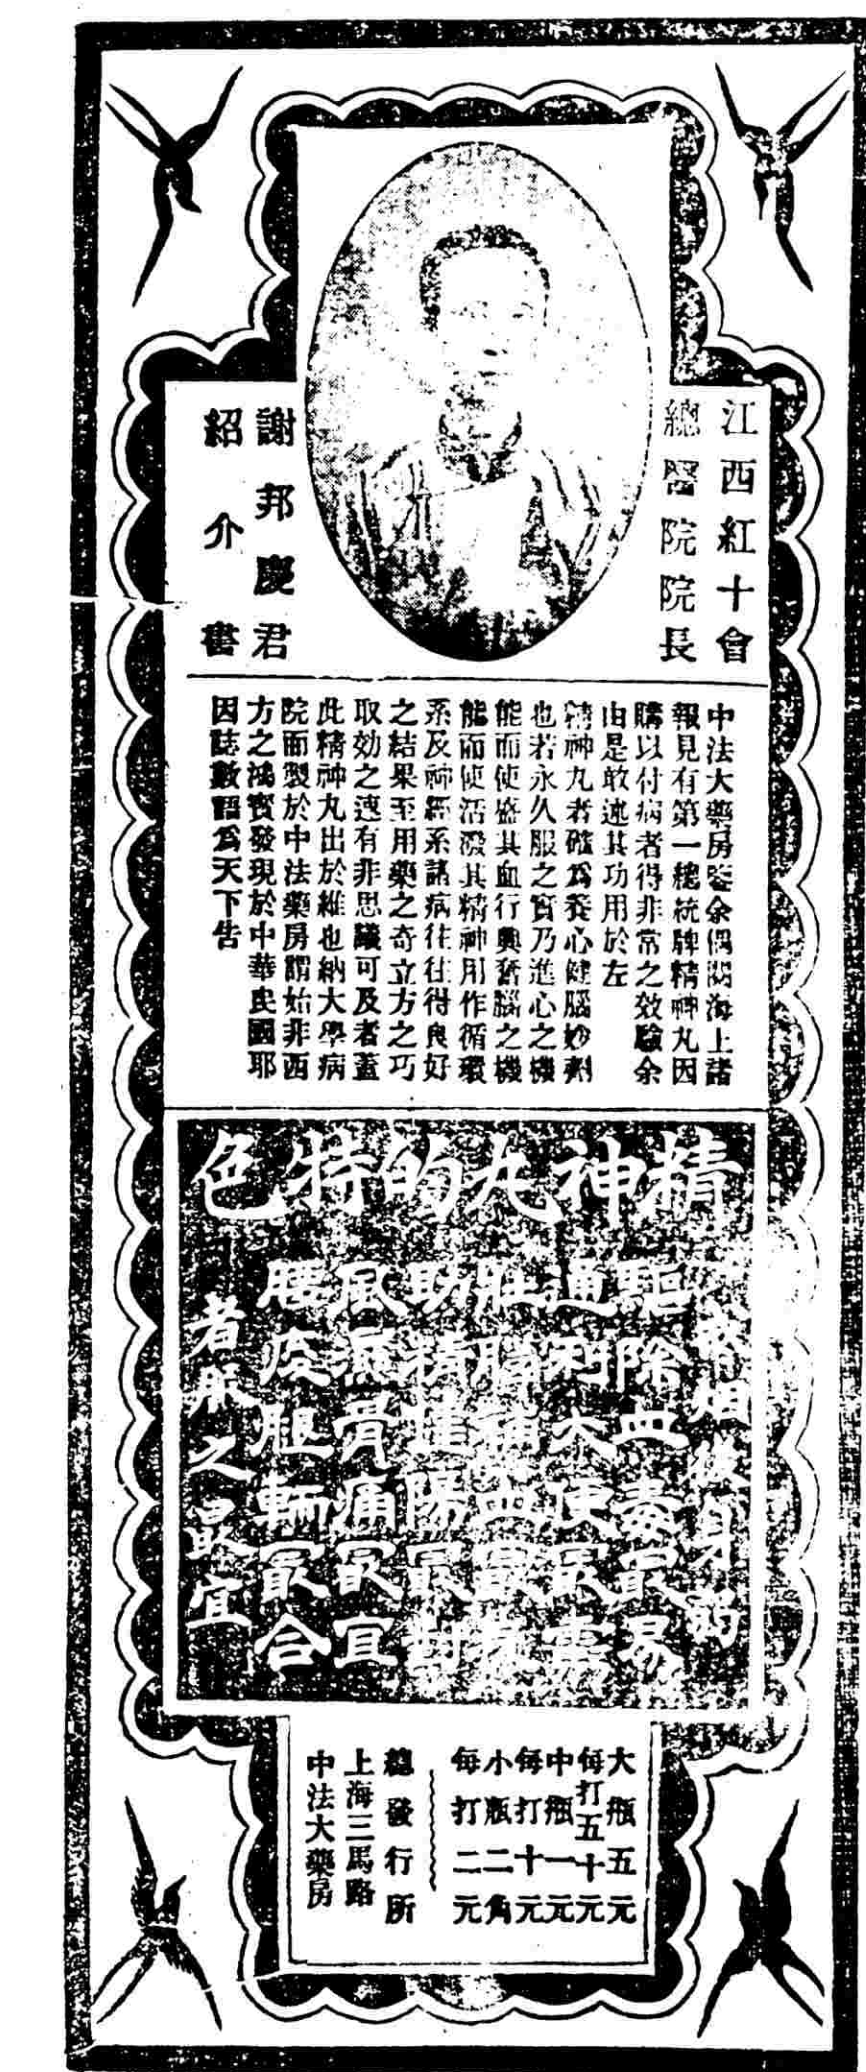 江西紅十會
總醫院院長
謝邦慶君
紹介書
中法大藥房鑒余偶閱海上諸
報見有第一總統牌精神丸因
購以付病者得非常之效驗余
由是敢述其功用於左
精神丸者確爲養心健腦妙劑
也若永久服之實乃進心之機
能而使盛其血行興奮腦之機
能而使活潑其精神用作循環
系及神經系諸病往往得良好
之結果至用藥之奇立方之巧
取効之速有非思議可及者蓋
此精神丸出於維也納大學病
院而製於中法藥房謂始非西
方之鴻寳發現於中華民國耶
因誌數語爲天下告
精神丸的特色
煙後身弱
驅除血毒最易
通利大便最靈
壯腦補血最
助精種陽最
風濕骨痛最宜
腰痠腿輭最合
者服之最宜
大瓶五元
每打五十元
中瓶一元
每打十元
小瓶二角
每打二元
總發行所
上海三馬路
中法大藥房